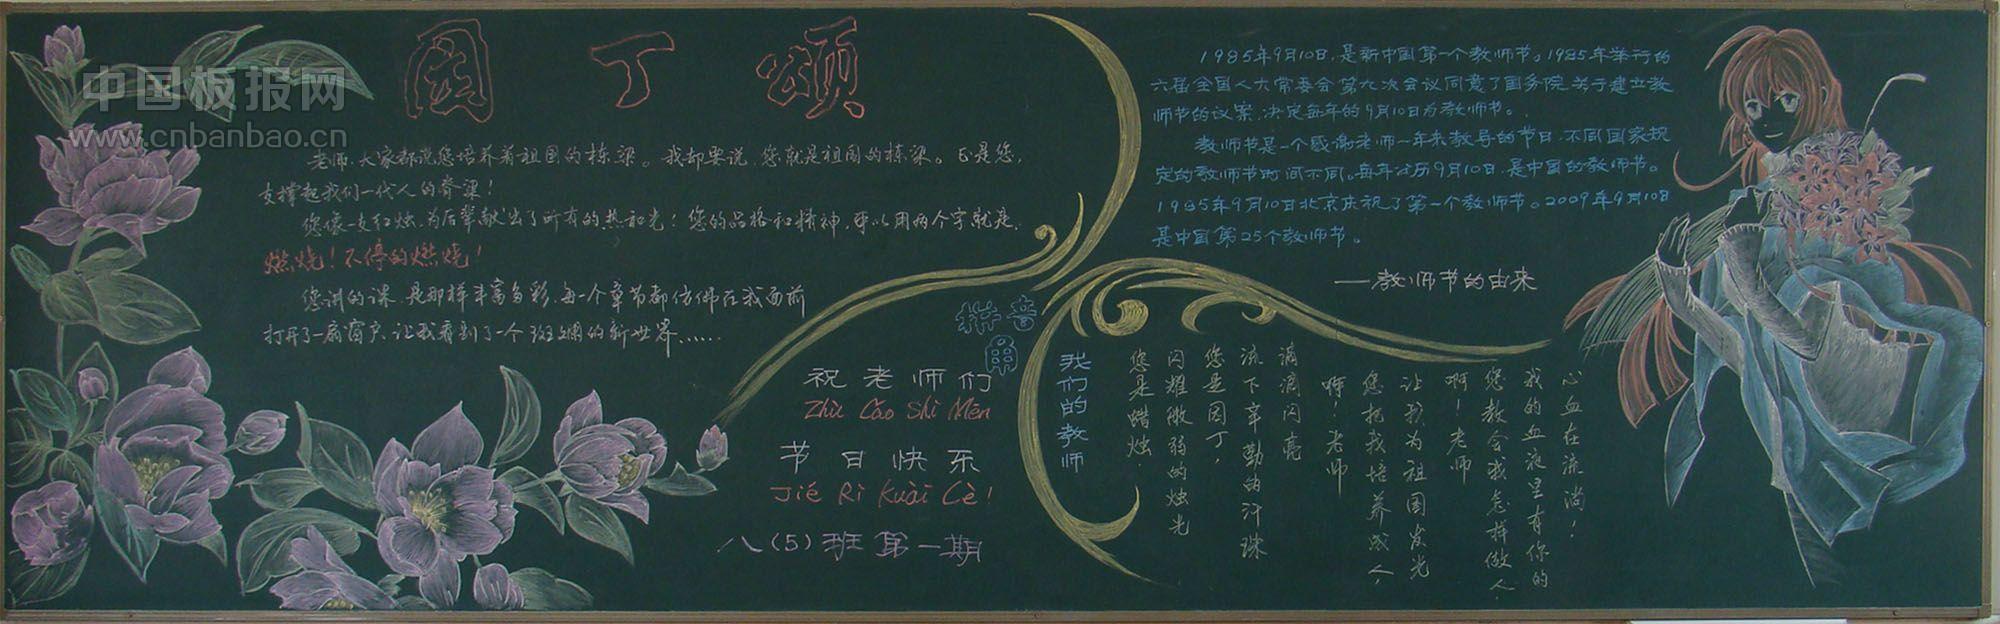 中国板报网
www.cnbanbao.cn
园丁颂
老师,大家都说您培养着祖国的栋梁。我却要说,您就是祖国的栋梁。正是您,
支撑起我们一代人的脊梁!
您像一支红烛,为后辈献出了所有的热和光!您的品格和精神,可以用两个字就是,
燃烧!不停的燃烧!
您讲的课,是那样丰富多彩,每一个章节都仿佛在我面前
打开了一扇窗户,让我看到了一个斑斓的新世界……
祝老师们
Zhù Cǎo Shī Mén
节日快乐
Jié Rì Kuài Cè!
八(5)班第一期
拼音
角
1985年9月10日,是新中国第一个教师节。1985年举行的
六届全国人大常委会第九次会议同意了国务院关于建立教
师节的议案,决定每年的9月10日为教师节。
教师节是一个感谢老师一年来教导的节日,不同国家规
定的教师节时间不同。每年公历9月10日,是中国的教师节。
1985年9月10日北京庆祝了第一个教师节。2009年9月10日
是中国第25个教师节。
——教师节的由来
我们的教师
您是蜡烛,
闪耀微弱的烛光
您是园丁,
流下辛勤的汗珠
滴滴闪亮
啊!老师
您把我培养成人,
让我为祖国发光
啊!老师
您教会我怎样做人
我的血液里有你的
心血在流淌!